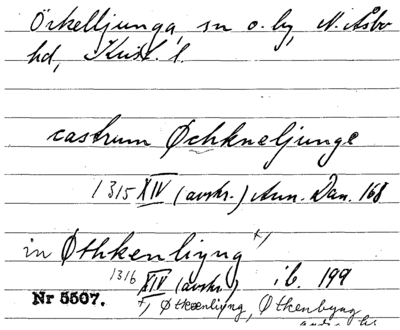 Örkelljunga, sn o. by, N. Åsbo
hd, Krist. l.
castrum Øchkneljunge
1315 XIV (avskr.) Ann. Dan. 168
in Øthkenliyng +)
1316 XIV (avskr.) ib. 199
Nr 5507.
+) Øtkenliyng, Øtkenbyng
andra hs